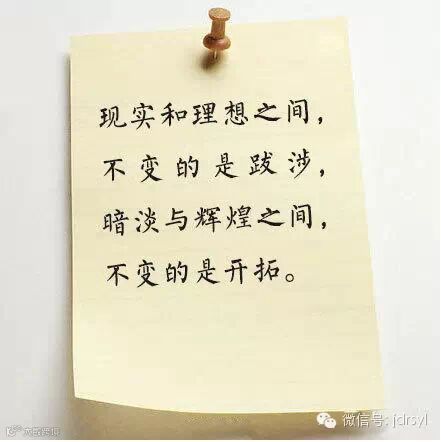 现实和理想之间，
不变的是跋涉，
暗淡与辉煌之间，
不变的是开拓。
微信号: jdrsyl